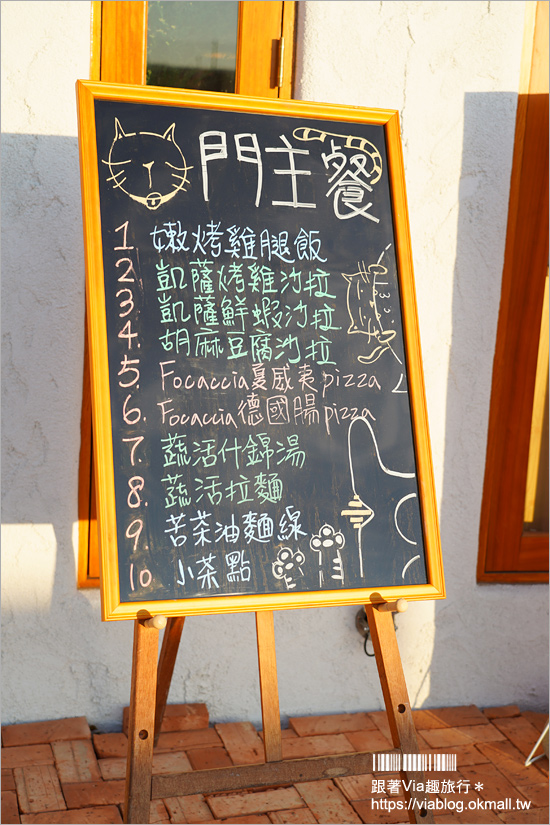 門主餐
1 嫩烤雞腿飯
2. 凱薩烤雞沙拉
3. 凱薩鮮蝦沙拉
4. 胡麻豆腐沙拉
5. Focaccia夏威夷pizza
6. Focaccia德國腸pizza
7 蔬活什錦湯
8. 蔬活拉麵
9 苦茶油麵線
10 小茶點
跟著Via趣旅行*
https://viablog.okmall.tw